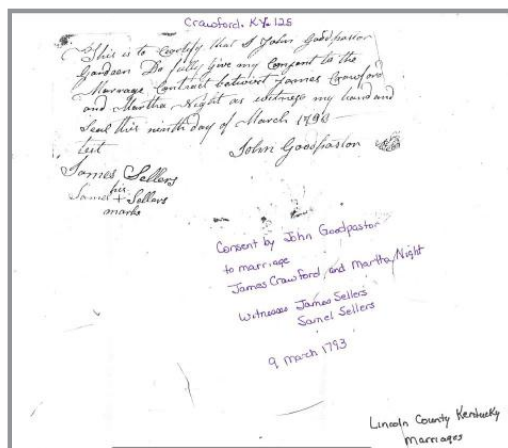 Crawford. KY. 125
This is to Certify that I John Goodpastor
Gardeen Do fully Give my Consent to the
Marrage Contract betwixt James Crawford
and Martha Night as witness my hand and
Seal this ninth day of March 1793
test
John Goodpastor
James Sellers
his
Samel + Sellers
marks
Consent by John Goodpastor
to marriage
James Crawford and Martha Night
Witnesses James Sellers
Samel Sellers
9 March 1793
Lincoln County Kentucky
Marriages